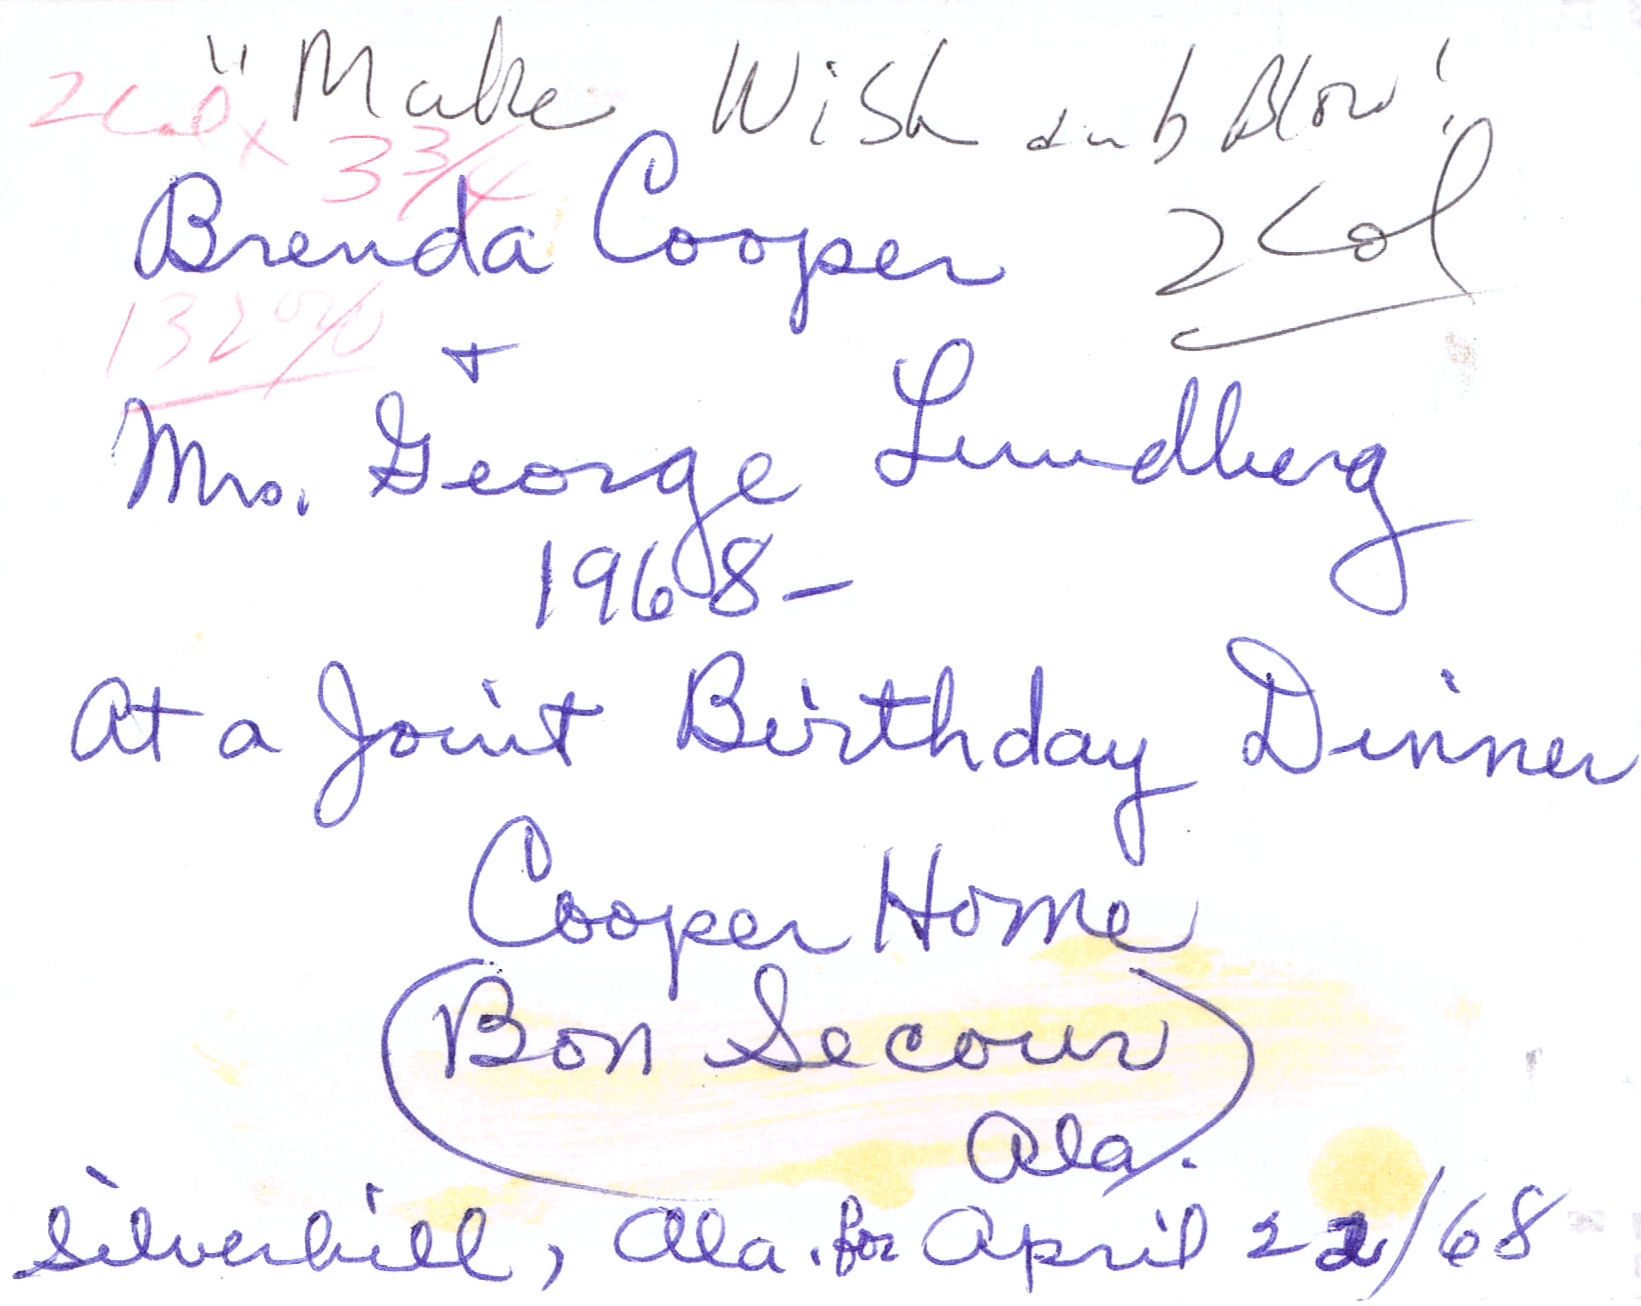 "Make Wish and Blow".
2 Col x 3 3/4
Brenda Cooper
2 Col
132%
+
Mrs. George Lundberg
1968-
At a Joint Birthday Dinner
Cooper Home
(Bon Secour)
Ala.
Silverhill, Ala. for April 22/68